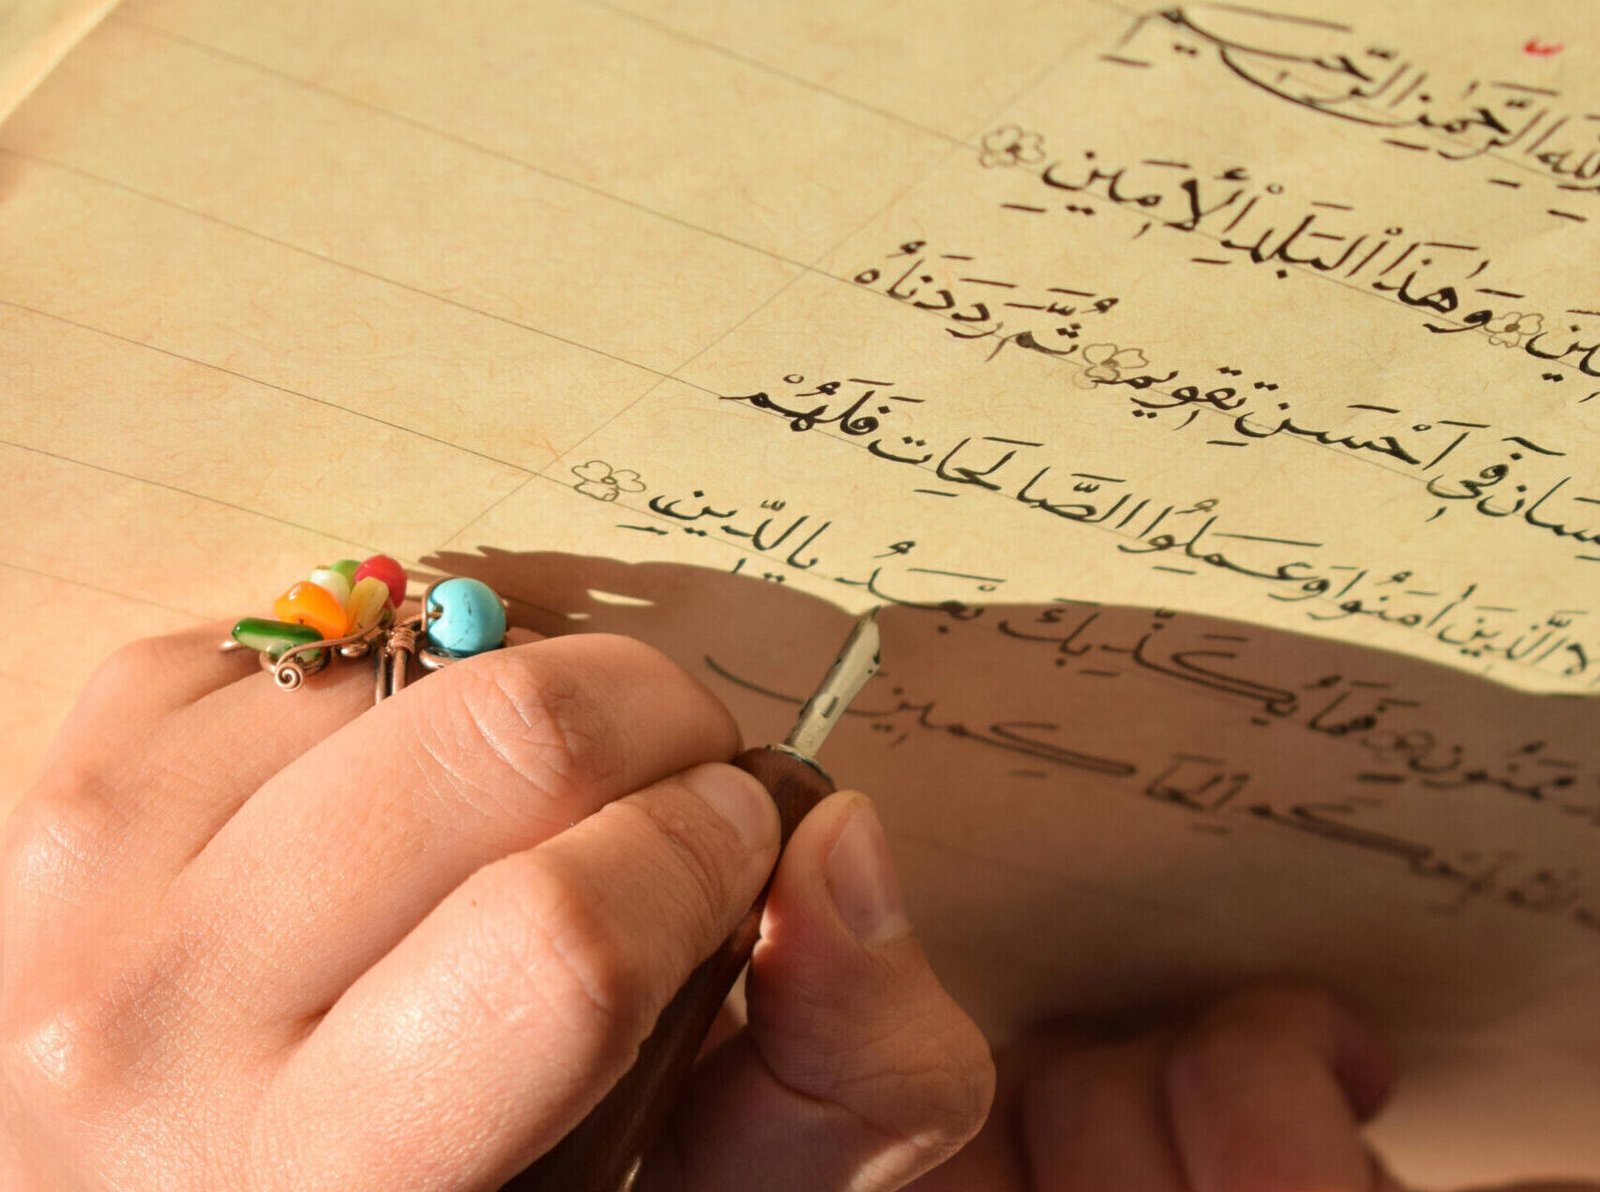 الله الرَّحْمٰنِ الرَّحِيمِ
وَهٰذَا الْبَلَدِ الْأَمِينِ
فِي أَحْسَنِ تَقْوِيمٍ ثُمَّ رَدَدْنَاهُ
الَّذِينَ اٰمَنُوا وَعَمِلُوا الصَّالِحَاتِ فَلَهُمْ
مَمْنُونٍ فَمَا يُكَذِّبُكَ بَعْدُ بِالدِّينِ
الْحَاكِمِينَ